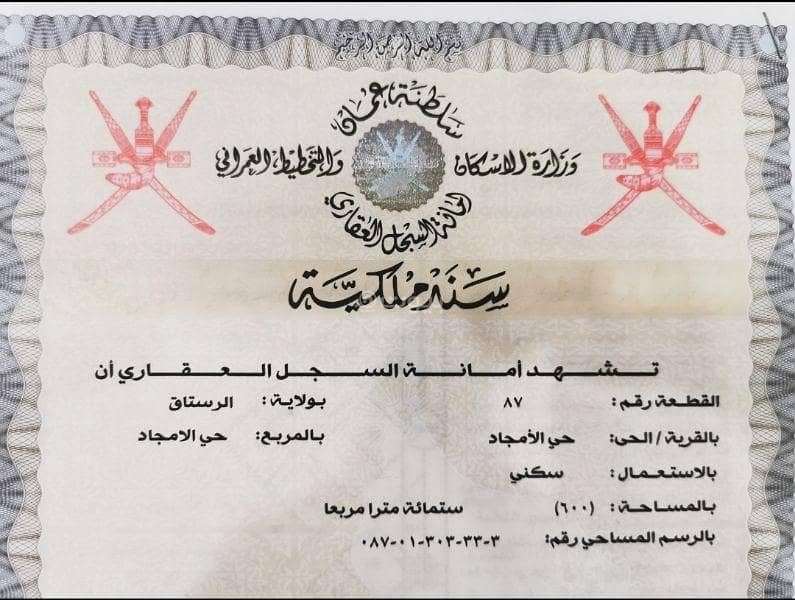 بسم الله الرحمن الرحيم
سلطنة عمان
وزارة الاسكان والتخطيط العمراني
أمانة السجل العقاري
سند ملكية
تشهد أمانة السجل العقاري أن
القطعة رقم: ٨٧ بولاية: الرستاق
بالقرية / الحى: حي الأمجاد بالمربع: حي الامجاد
بالاستعمال: سكني
بالمساحة: (٦٠٠) ستمائة مترا مربعا
بالرسم المساحي رقم: ٣-٣٣-٣٠٣-٠١-٠٨٧